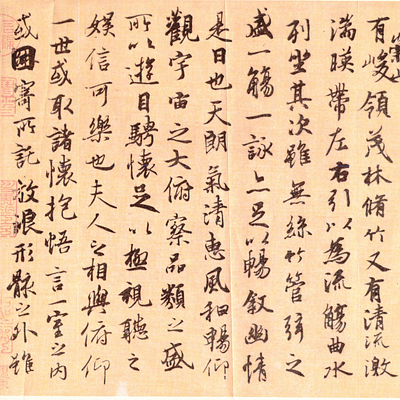 崇山
有峻領茂林脩竹又有清流激
湍暎帶左右引以為流觴曲水
列坐其次雖無絲竹管弦之
盛一觴一詠亦足以暢敘幽情
是日也天朗氣清惠風和暢仰
觀宇宙之大俯察品類之盛
所以遊目騁懷足以極視聽之
娛信可樂也夫人之相與俯仰
一世或取諸懷抱悟言一室之內
或因寄所託放浪形骸之外雖